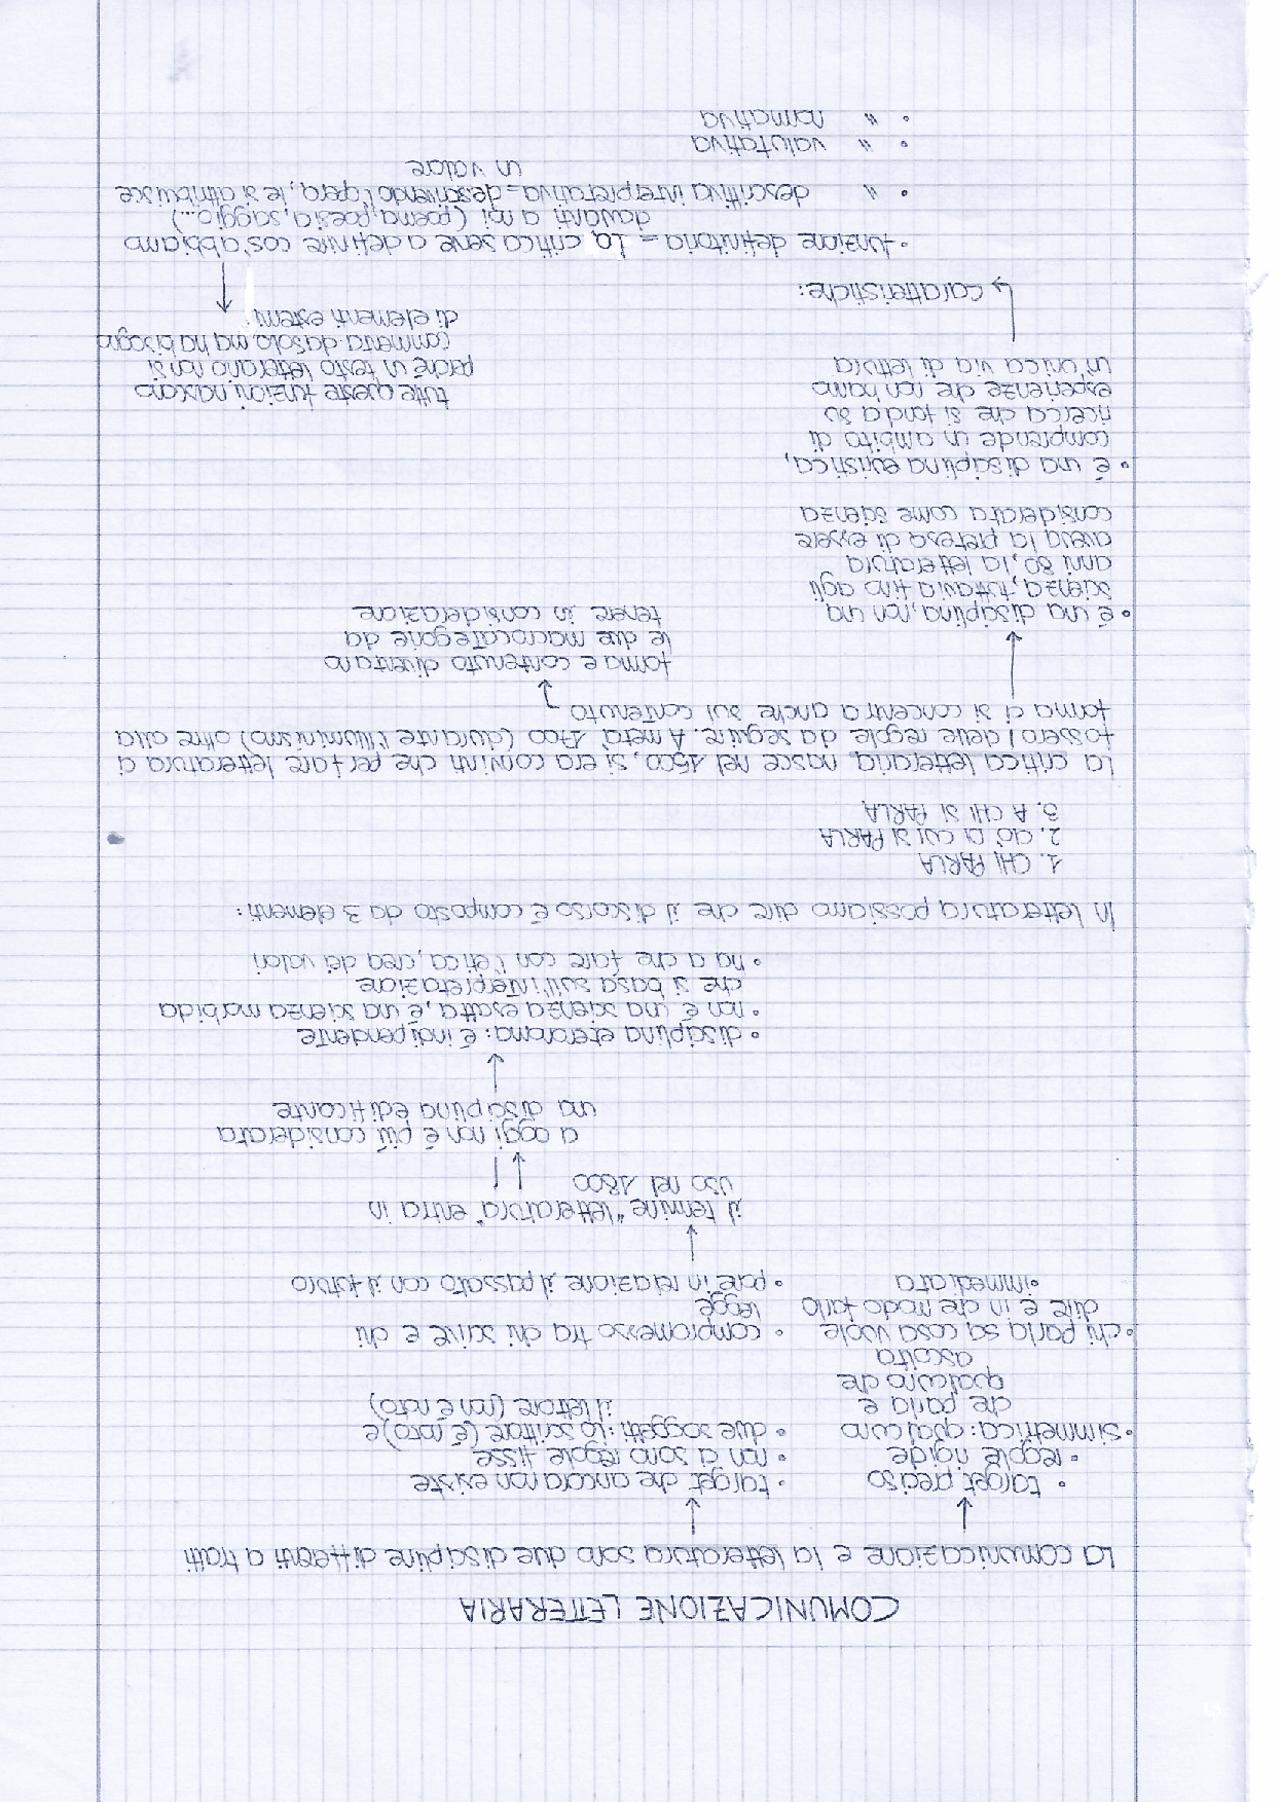 COMUNICAZIONE LETTERARIA
La comunicazione e la letteratura sono due discipline differenti a tratti
• target preciso
• regole rigide
• simmetrica: qualcuno
che parla e
qualcuno che
ascolta
• chi parla sa cosa vuole
dire e in che modo farlo
• immediata
• target che ancora non esiste
• non ci sono regole fisse
• due soggetti: lo scrittore (è noto) e
il lettore (non è noto)
• compromesso tra chi scrive e chi
legge
• pone in relazione il passato con il futuro
il termine "letteratura" entra in
uso nel 1800
a oggi non è più considerata
una disciplina edificante
• disciplina eteronoma: è indipendente
• non è una scienza esatta, è una scienza morbida
che si basa sull'interpretazione
• ha a che fare con l'etica, crea dei valori
In letteratura possiamo dire che il discorso è composto da 3 elementi:
1. CHI PARLA
2. CIÒ DI CUI SI PARLA
3. A CHI SI PARLA
La critica letteraria nasce nel 1500, si era convinti che per fare letteratura ci
fossero delle regole da seguire. A metà 1700 (durante l'illuminismo) oltre alla
forma ci si concentra anche sul contenuto
forma e contenuto diventano
le due macrocategorie da
tenere in considerazione
• è una disciplina, non una
scienza, tuttavia fino agli
anni 80, la letteratura
aveva la pretesa di essere
considerata come scienza
• è una disciplina euristica,
comprende un ambito di
ricerca che si fonda su
esperienze che non hanno
un'unica via di lettura
caratteristiche:
• funzione definitoria = la critica serve a definire cos'abbiamo
davanti a noi (poema, poesia, saggio...)
• " descrittiva interpretativa = descrivendo l'opera, le si attribuisce
un valore
• " valutativa
• " normativa
tutte queste funzioni nascono
perché un testo letterario non si
commenta da solo, ma ha bisogno
di elementi esterni